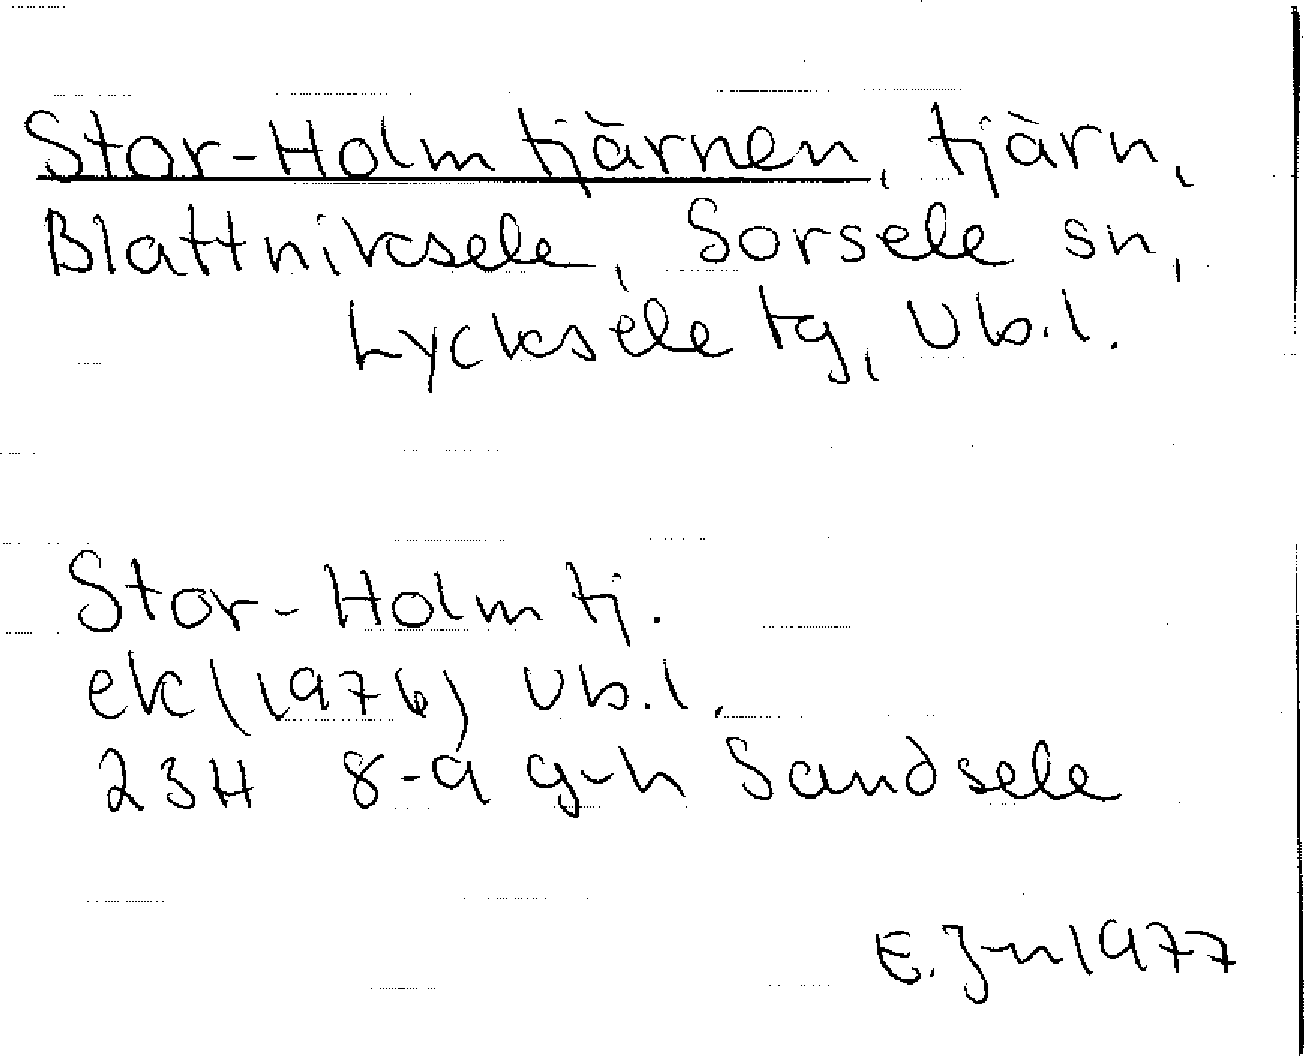 Stor-Holmtjärnen, tjärn,
Blattniksele, Sorsele sn,
Lycksele tg, Vb.l.
Stor-Holmtj.
ek (1976) Vb.l.
23H 8-9 g-h Sandsele
E. J-n 1977